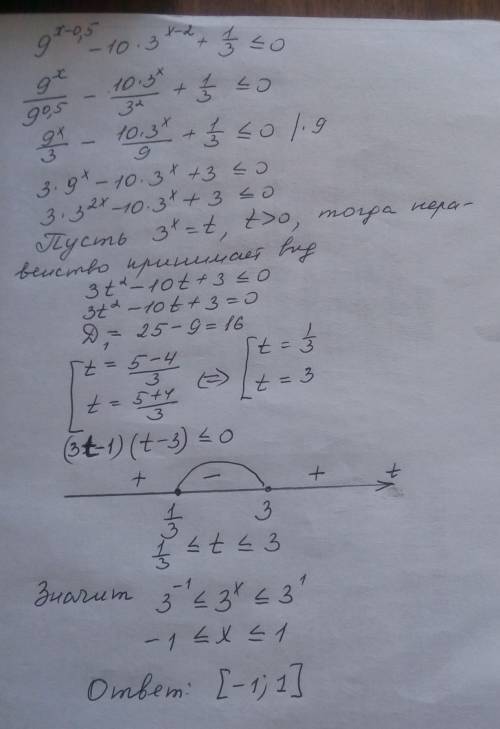 9^(x-0,5) - 10·3^(x-2) + 1/3 ≤ 0
9^x/9^(0,5) - 10·3^x/3² + 1/3 ≤ 0
9^x/3 - 10·3^x/9 + 1/3 ≤ 0 /·9
3·9^x - 10·3^x + 3 ≤ 0
3·3^(2x) - 10·3^x + 3 ≤ 0
Пусть 3^x = t, t>0, тогда нера-
венство принимает вид
3t² - 10t + 3 ≤ 0
3t² - 10t + 3 = 0
D₁ = 25 - 9 = 16
[ t = (5-4)/3 ⇔ [ t = 1/3
t = (5+4)/3 t = 3
(3t-1)(t-3) ≤ 0
+ - + t
1/3 3
1/3 ≤ t ≤ 3
Значит 3^(-1) ≤ 3^x ≤ 3^1
-1 ≤ x ≤ 1
Ответ: [-1; 1]